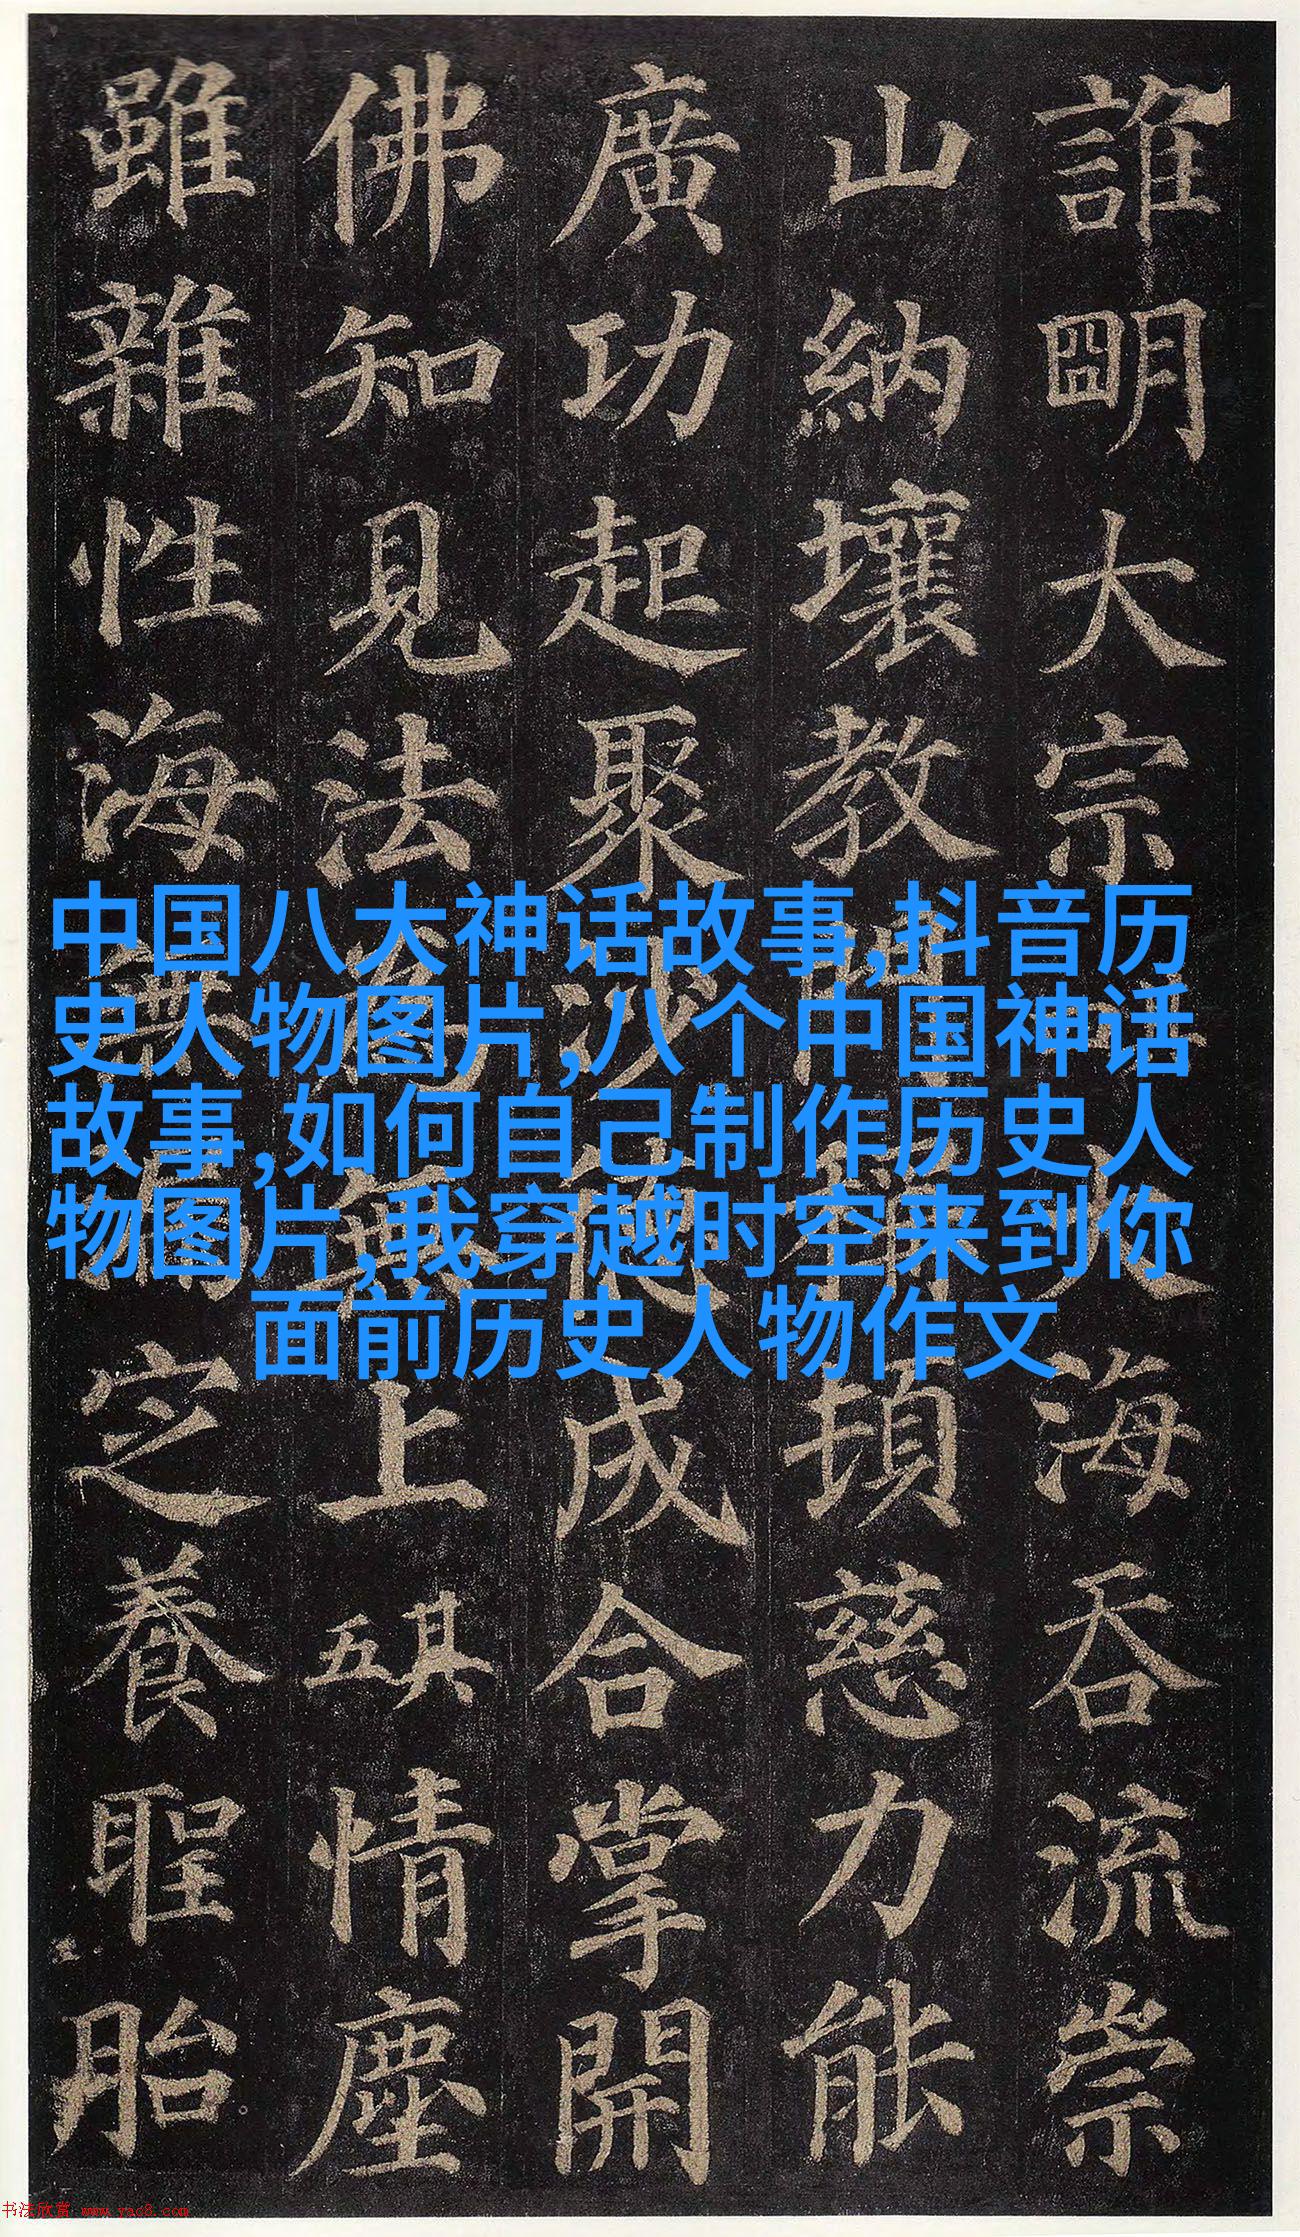 誰明大宗大海吞流崇
山納壤教門稱頓慈力能
廣功起聚沙德成合掌開
佛知見法為無上其五情塵
雖雜性海無漏定養聖胎
中国八大神话故事,抖音历
史人物图片,八个中国神话
故事,如何自己制作历史人
物图片,我穿越时空来到你
面前历史人物作文
书法欣赏 www.yac8.com